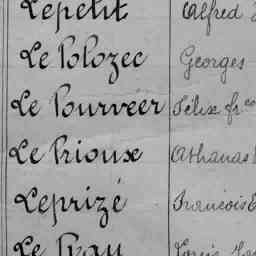 Lepetit Alfred
Le Polozec Georges
Le Pourvéer Félix fr
Le Prioux Athanas
Leprizé François E
Le Prau Louis